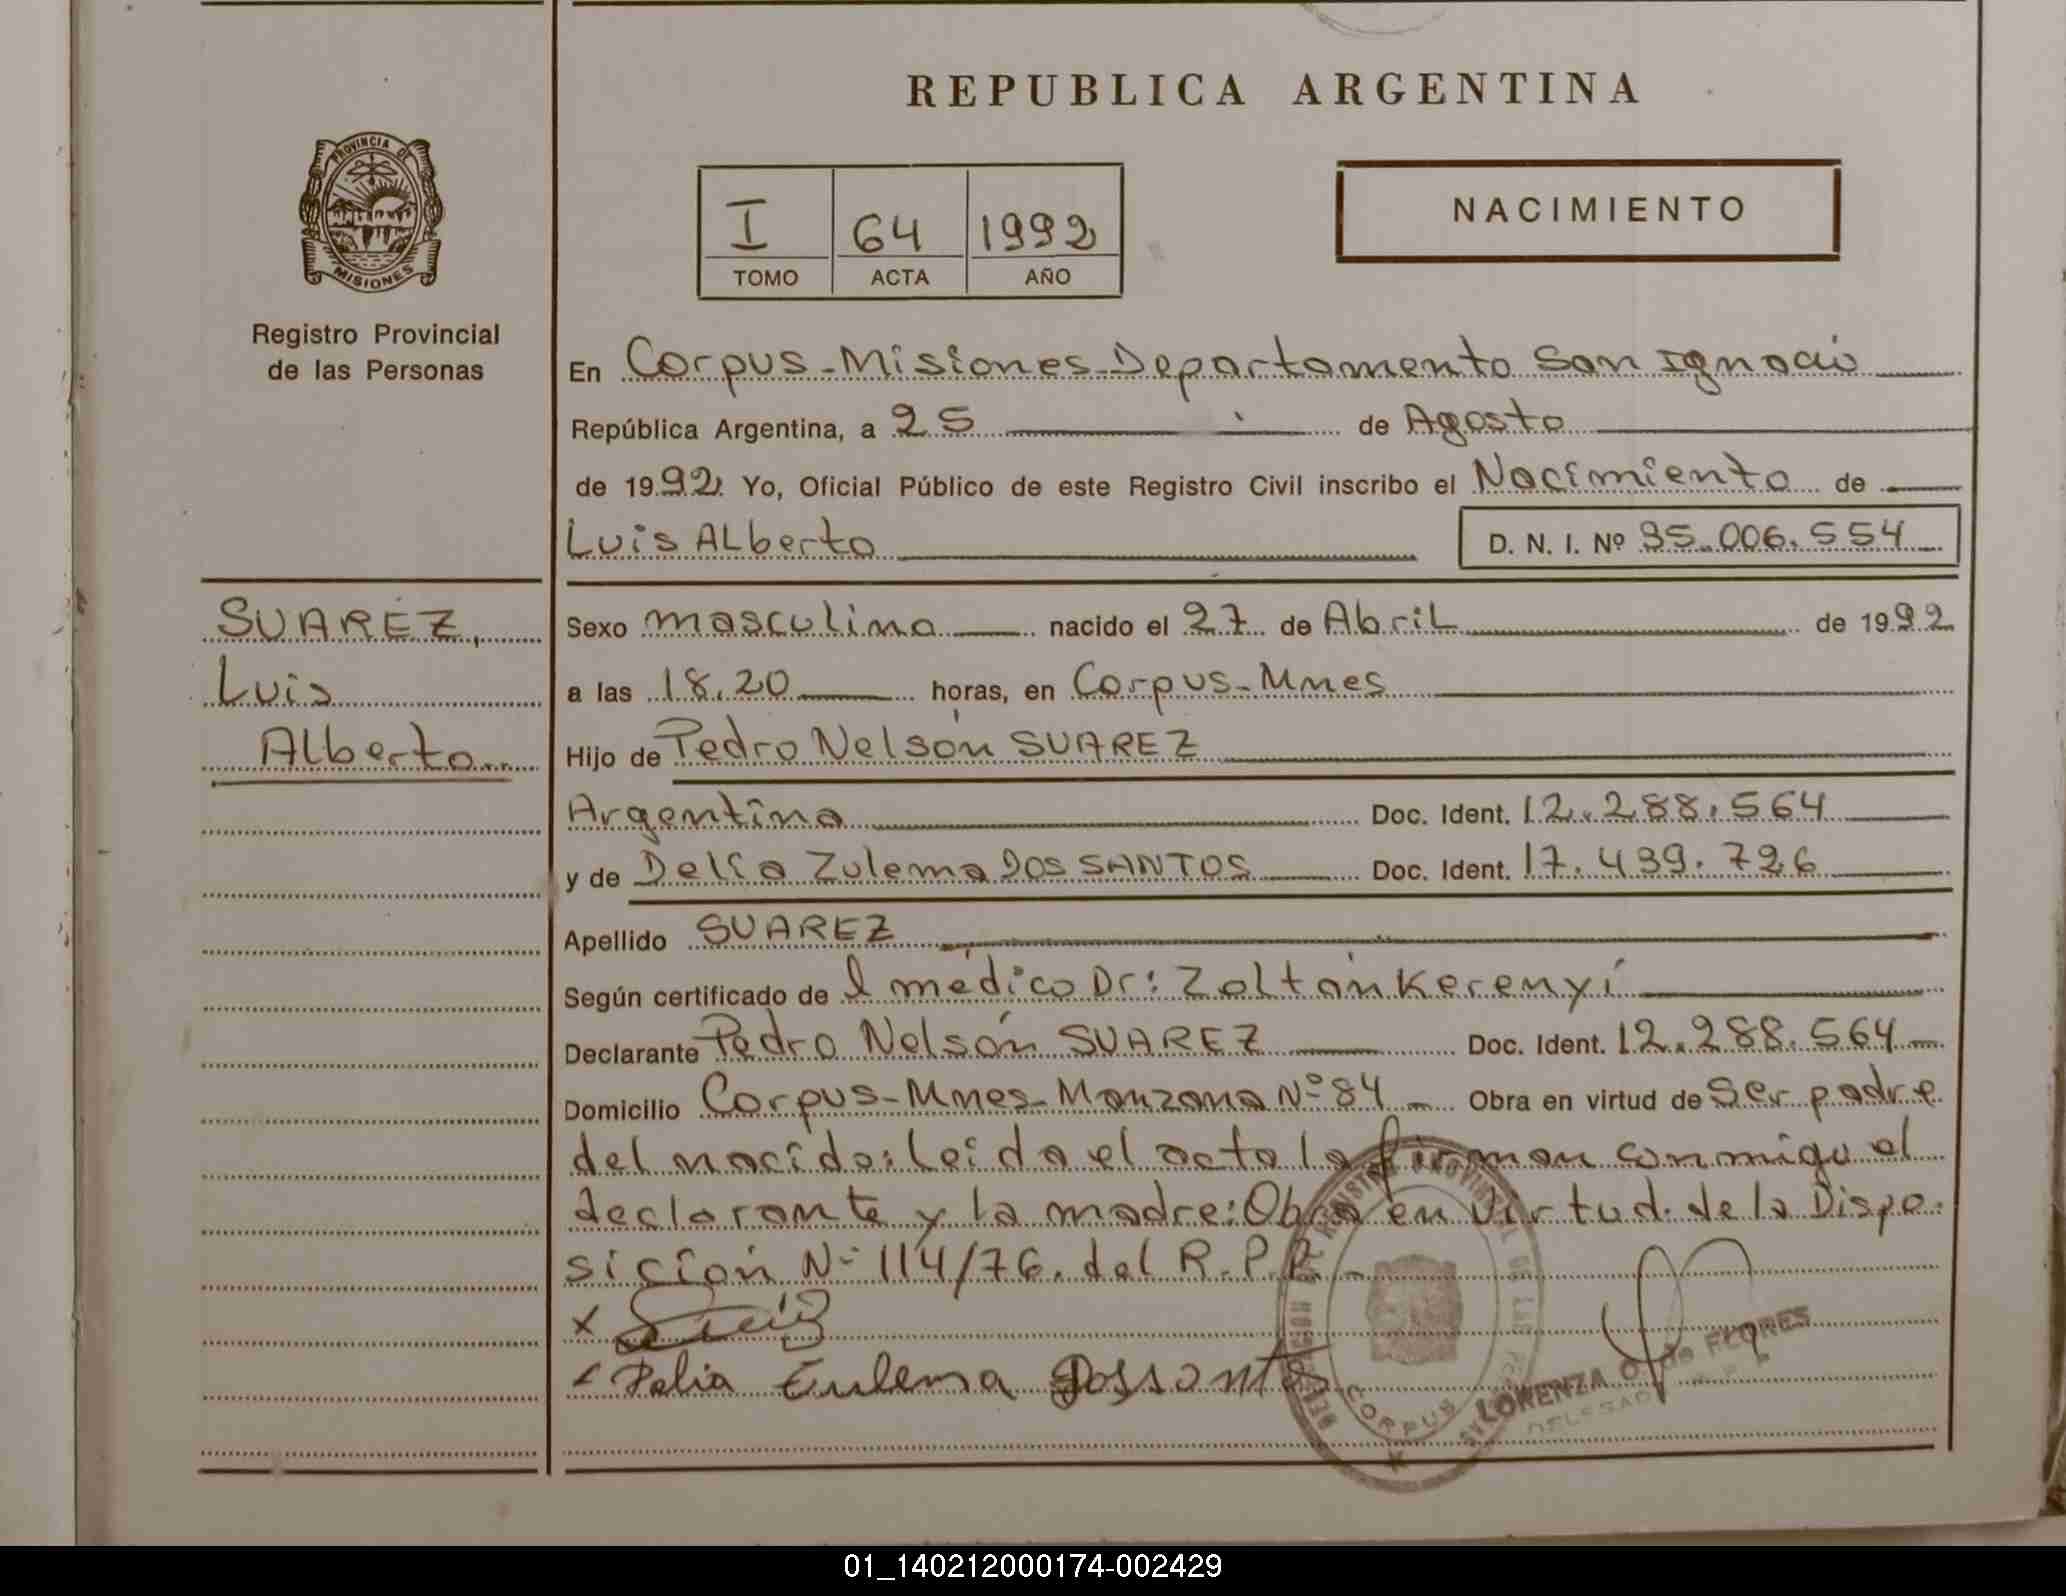 REPUBLICA ARGENTINA
PROVINCIA DE
MISIONES
Registro Provincial
de las Personas
I 64 1992
TOMO ACTA AÑO
NACIMIENTO
En Corpus-Misiones-Departamento San Ignacio
República Argentina, a 25 de Agosto
de 1992. Yo, Oficial Público de este Registro Civil inscribo el Nacimiento de
Luis Alberto D. N. I. Nº 35.006.554
SUAREZ,
Luis
Alberto
Sexo masculino nacido el 27 de Abril de 1992
a las 18.20 horas, en Corpus-Mnes
Hijo de Pedro Nelsón SUAREZ
Argentino Doc. Ident. 12.288.564
y de Delia Zulema DOS SANTOS Doc. Ident. 17.439.726
Apellido SUAREZ
Según certificado de l médico Dr: Zoltán Kerenyí
Declarante Pedro Nelsón SUAREZ Doc. Ident. 12.288.564
Domicilio Corpus-Mnes-Manzana Nº 84 Obra en virtud de Ser padre
del nacido: Leida el acta la firman conmigo el
declarante y la madre: Obra en virtud de la Dispo-
sición Nº 114/76. del R.P.P.
x
x Delia Zulema Dossanto
CORPUS
LORENZA O. de FLORES
01_140212000174-002429